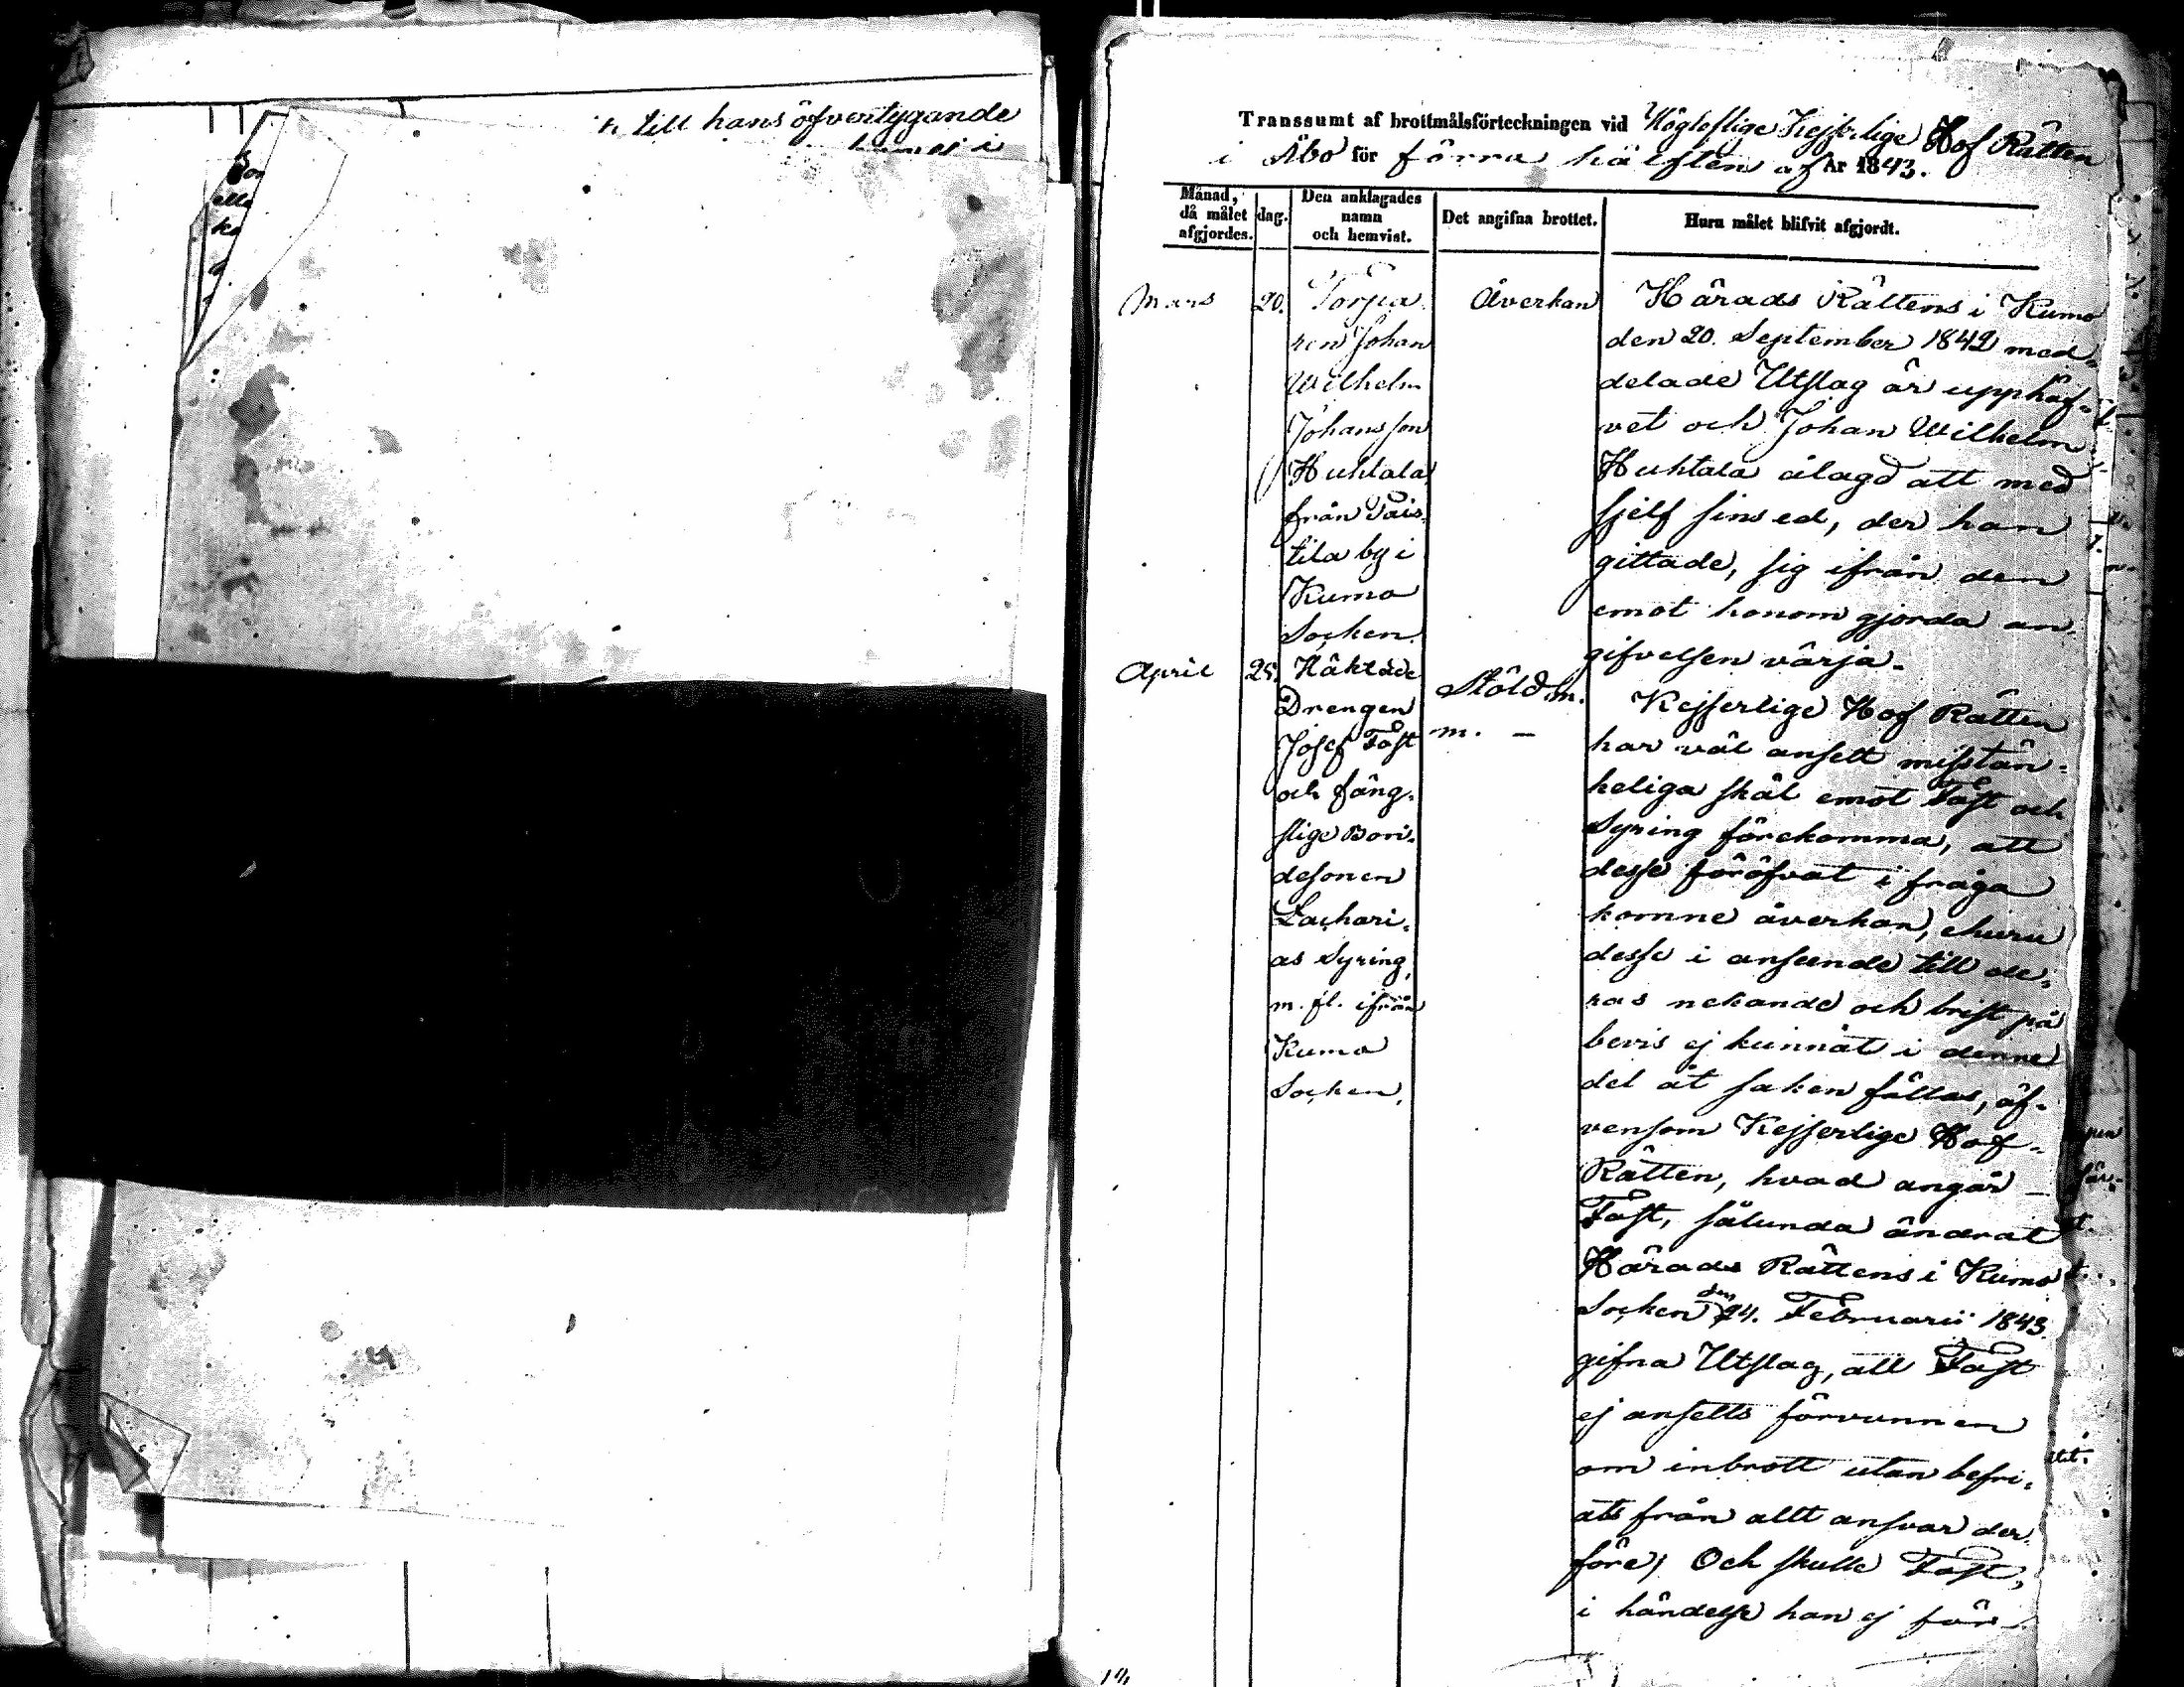 till hans öfvertygande
i
Transsumt af brottmålsförteckningen vid Högloflige Kejserlige Hof Rätten
i Åbo för förra hälften af År 1843.
Månad, då målet afgjordes.
dag.
Den anklagades namn och hemvist.
Det angifna brottet.
Huru målet blifvit afgjordt.
Mars
20.
Torpa
ren Johan
Wilhelm
Johansson
Huhtala
från Pais
tila by i
Kumo
Socken.
Åverkan
Härads Rättens i Kumo
den 20. September 1842 med=
delade Utslag är upphäf=
vet och Johan Wilhelm
Huhtala ålagd att med
sjelf sins ed, der han
gittade, sig ifrån den
emot honom gjorda an=
gifvelsen värja.
April
25.
Häktade
Drengen
Josef Fast
och fäng=
slige Bon=
desonen
Zachari=
as Syring,
m. fl. ifrån
Kumo
Socken,
Stöld m.
m. –
Kejserlige Hof Rätten
har väl ansett misstän=
keliga skäl emot Fast och
Syring förekomma, att
desse föröfvat i fråga
komne åverkan, ehuru
desse i anseende till de=
ras nekande och brist på
bevis ej kunnat i denne
del åt saken fällas, äf=
vensom Kejserlige Hof=
Rätten, hvad angår
Fast, sålunda ändrat
Härads Rättens i Kumo
Socken den 24. Februarii 1843
gifna Utslag, att Fast
ej ansetts förvunnen
om inbrott utan befri=
ats från allt ansvar der
före; Och skulle Fast,
i händelse han ej för=